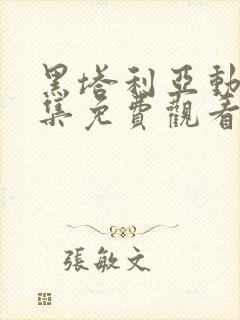 黑塔利亞動
集免費觀看
張敏文